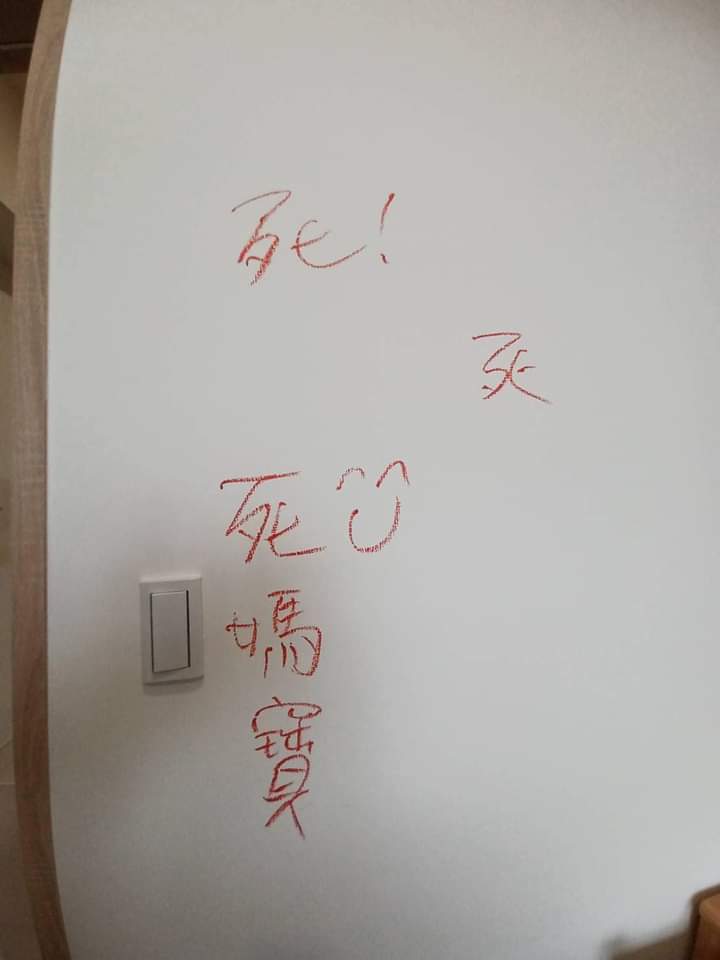 死!
死
死
媽
寶